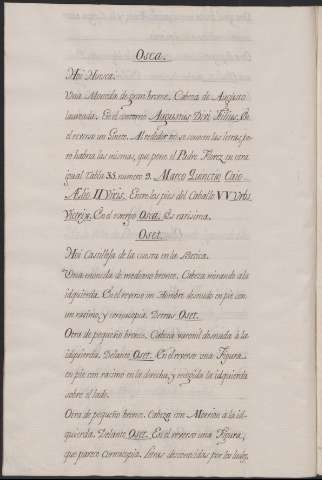 Osca.
Hoi Huesca.
Una Moneda de gran bronce. Cabeza de Augusto
laureada. En el contorno Augustus Divi Filius. En
el reverso un Ginete. Alrededor no se conocen las letras, pe-
ro habria las mismas, que pone el Padre Florez en otra
igual Tabla 35. numero 9. Marco Quinctio Caio
Aelio II Viris. Entre los pies del Caballo V V Urbs
Victrix. En el exergo Osca. Es rarisima.
Oset.
Hoi Castilleja de la cuesta en la Betica.
Una moneda de mediano bronce. Cabeza mirando a la
idquierda. En el reverso un Hombre desnudo en pie con
un racimo, y cornucopia. Detras Oset.
Otra de pequeño bronce. Cabeza varonil desnuda à la
idquierda. Delante Oset. En el reverso una Figura
en pie con racimo en la derecha, y recogida la idquierda
sobre el lado.
Otra de pequeño bronce. Cabeza con Morrion a la id-
quierda. Delante Oset. En el reverso una Figura,
que parece Cornucopia. Letras desconocidas por los lados.